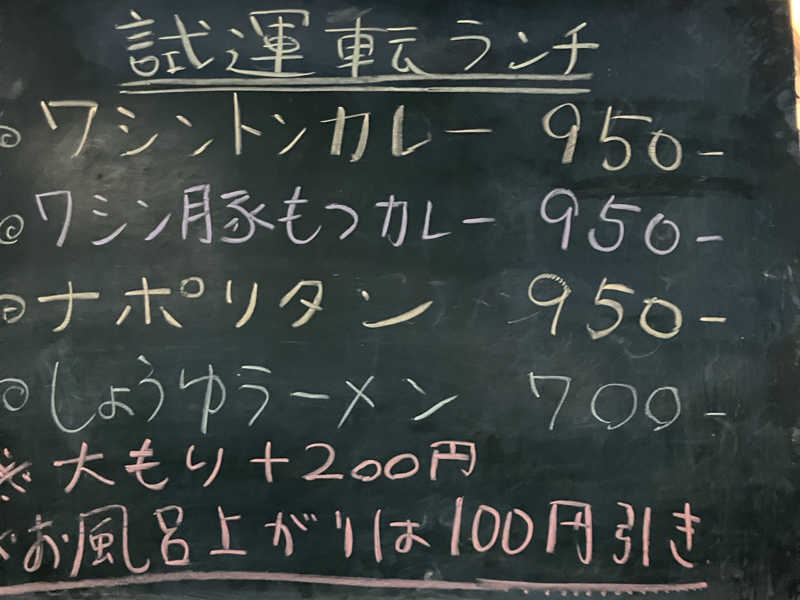 試運転ランチ
◎ワシントンカレー 950-
◎ワシン豚もつカレー 950-
◎ナポリタン 950-
◎しょうゆラーメン 700-
※大もり+200円
※お風呂上がりは100円引き